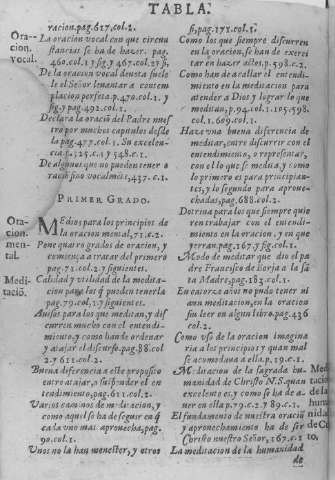 TABLA.
racion. pag. 617. col. 2.
Ora-
cion.
vocal.
La oracion vocal con que circun
stancias se ha de hazer. pag.
460. col. 1. y sig. y 467. col. 2. y si,
De la oracion vocal devota suele
le el Señor levantar a contem
placion perfeta. p. 470. col. 1. y
sig. y pag. 492. col. 1.
Declara la oració del Padre nues
tro por muchos capitulos desde
la pag. 477. col. 1. Su excelen-
cia. p. 525. c. 1 y 548. c. 1.
De algunos que no pueden tener o
racion sino vocalmẽte, 437. c. 1.
PRIMER GRADO.
Ora-
cion.
men-
tal.
MEdios para los principios de
la oracion mental, 71. c. 2.
Pone quatro grados de oracion, y
comiença a tratar del primero
pag. 72. col. 2. y siguientes.
Medi-
tació.
Calidad y utilidad de la medita
cion para los q̃ pueden tenerla
pag. 79. col. 1. y siguientes.
Avisos para los que meditan, y dis
curren mucho con el entendi-
miento, y como han de ordenar
y atajar el discurso. pag. 88. col
2. y 611. col. 2.
Buena diferencia a este proposito
entre atajar, o suspender el en
tendimiento, pag. 611. col. 2.
Varios caminos de meditacion, y
como aquel se ha de seguir en q̃
cada uno mas aprovecha, pag.
90. col. 1.
Unos no la han menester, y otros
si, pag. 171. col. 1.
Como los que siempre discurren
en la oracion, se han de exerci
tar en hazer actos. p. 598. c. 2.
Como han de acallar el entendi-
miento en la meditacion para
atender a Dios y lograr lo que
meditan, p. 94. col. 1. 105. 598.
col. 1. 609. col. 1.
Haze una buena diferencia de
meditar, entre discurrir con el
entendimiento, o representar,
con el lo que se medita, y como
lo primero es para principian-
tes, y lo segundo para aprove-
chadas, pag. 688. col. 2.
Dotrina para los que siempre quie
ren trabajar con el entendi-
miento en la oracion, y en que
yerran. pag. 167. y sig. col. 1.
Modo de meditar que dio el pa
dre Francisco de Borja a la sã
ta Madre, pag. 182. col. 1.
En catorce años no pudo tener ni
aun meditacion, en la oracion
sin leer en algun libro, pag. 436
col. 2.
Como usó de la oracion imagina
ria a los principios y quan mal
se acomodava a ella. p. 19. c. 1.
Meditacion de la sagrada hu-
manidad de Christo N. S. quan
excelente es, y como se ha de a-
ner en ella p. 79. c. 2. y 89. c. 1.
El fundamento de nuestra oració
y aprovechamiento ha de ser
Christo nuestro Señor, 167. c. 2
La meditacion de la humanidad
de
Medi
tacio
de la
huma
nidad
de Ch
to,